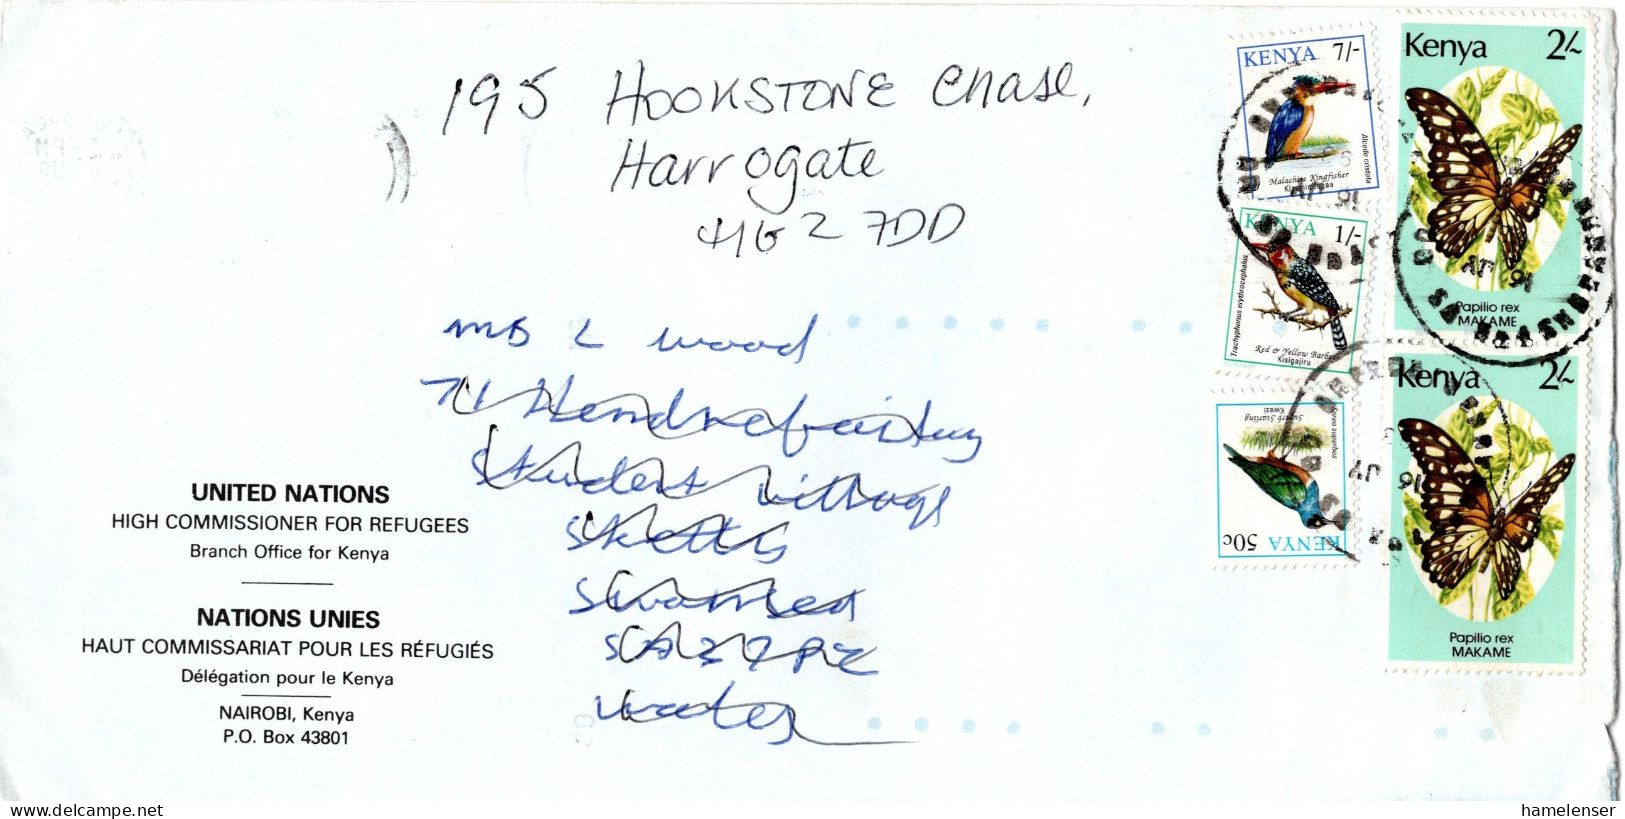 195 HOOKSTONE Chase,
Harrogate
HG2 7DD
MS L Wood
71 Hendrefoilan
Student Village
Sketty
Swansea
SA2 7PZ
Wales
UNITED NATIONS
HIGH COMMISSIONER FOR REFUGEES
Branch Office for Kenya
NATIONS UNIES
HAUT COMMISSARIAT POUR LES RÉFUGIÉS
Délégation pour le Kenya
NAIROBI, Kenya
P.O. Box 43801
KENYA 7/-
Alcedo cristata
Malachite Kingfisher
KENYA 1/-
Trachyphonus erythrocephalus
Red & Yellow Barbet
Kisigajiru
KENYA 50c
Spreo superbus
Superb Starling
Kwezi
Kenya 2/-
Papilio rex
MAKAME
Kenya 2/-
Papilio rex
MAKAME
hamelenser
www.delcampe.net